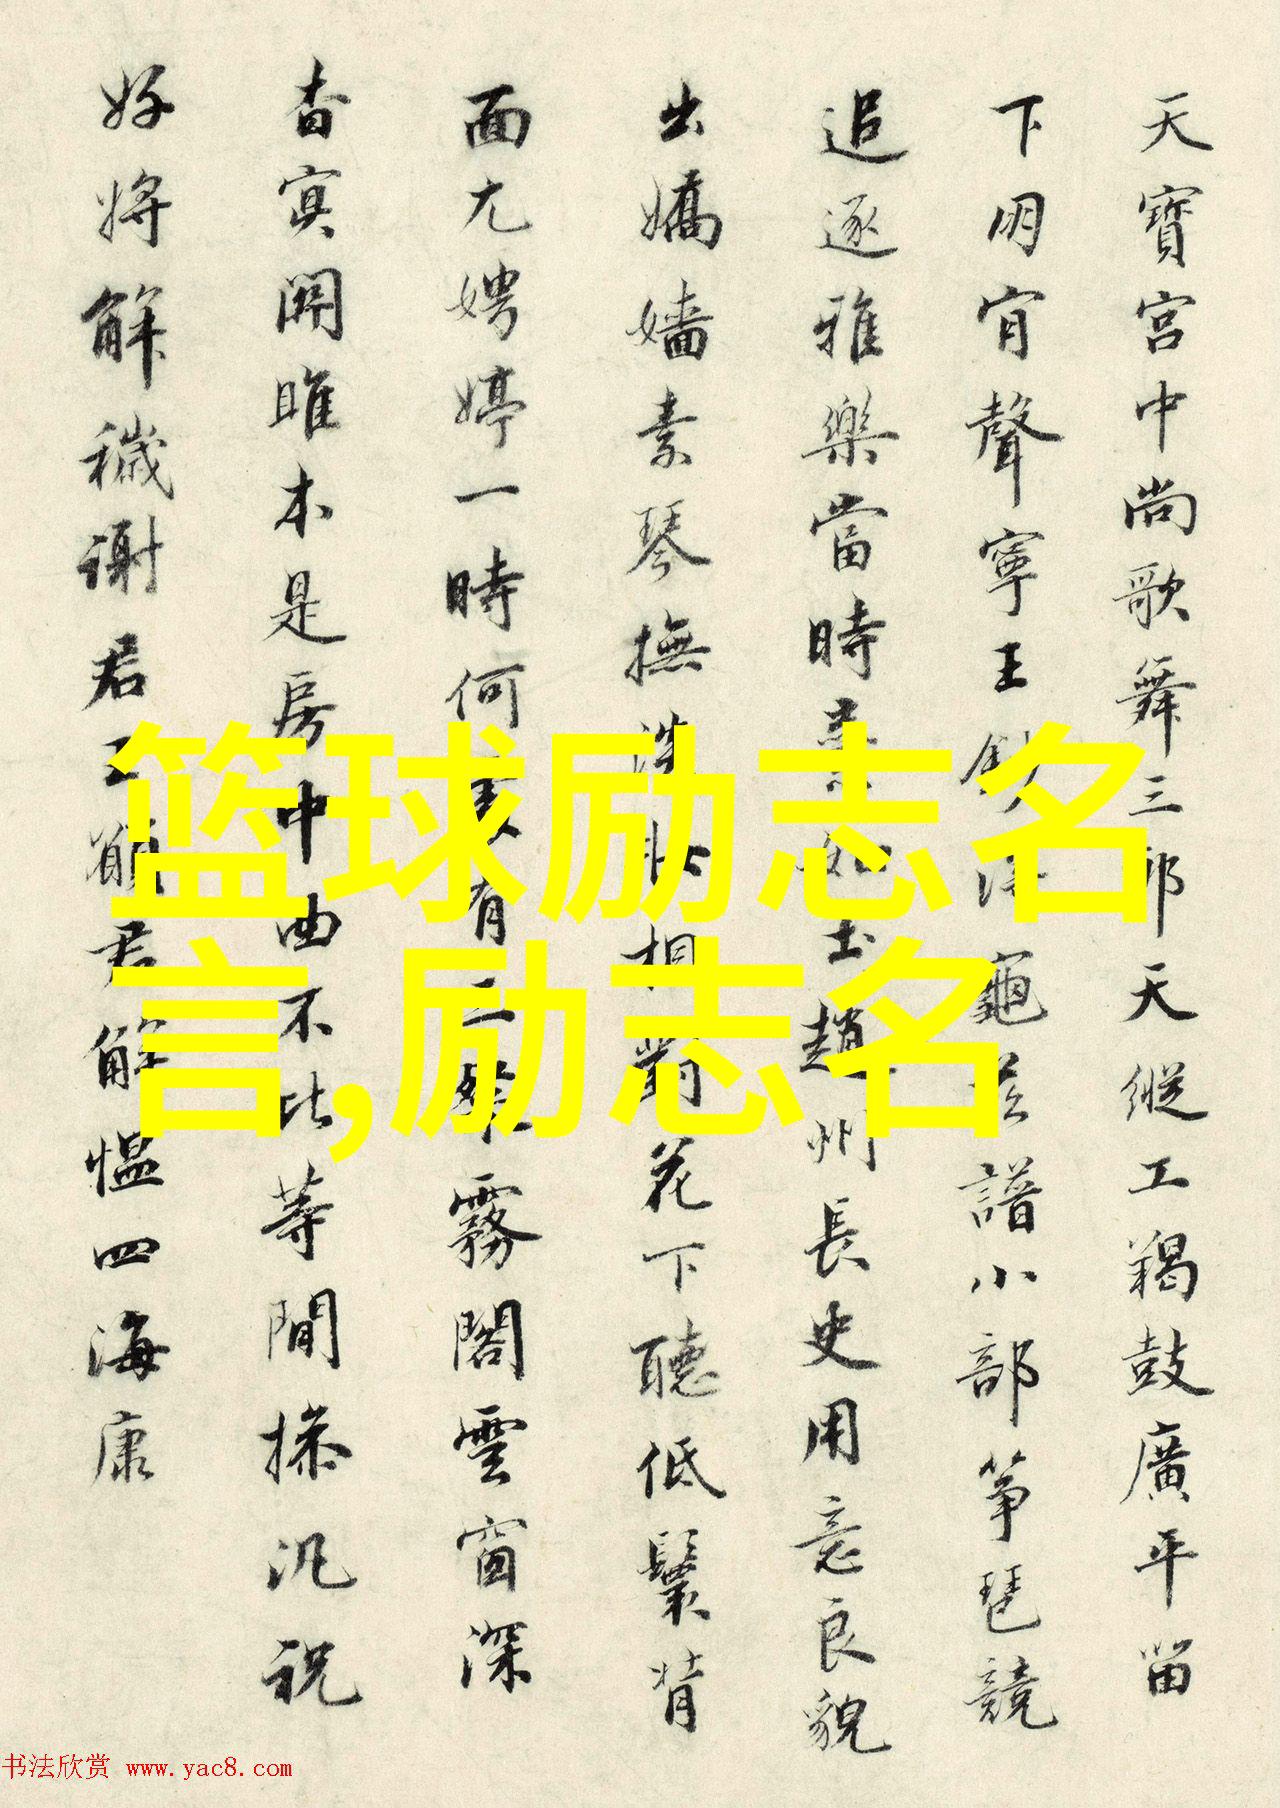 天寶宮中尚歌舞三郎天縱工羯鼓廣平留
下明肯聲寧王龜茲譜小部箏琶競
追逐雅樂當時如土趙州長史用意良貌
出嬌嬙素琴撫洗妝相對花下聽低鬟背
面尤娉婷一時何有二霧閣雲窗深
杳冥關雎本是房中曲不比等閒操汎祝
好將解穢謝君王願君解慍四海康
篮球励志名
言,励志名
书法欣赏 www.yac8.com